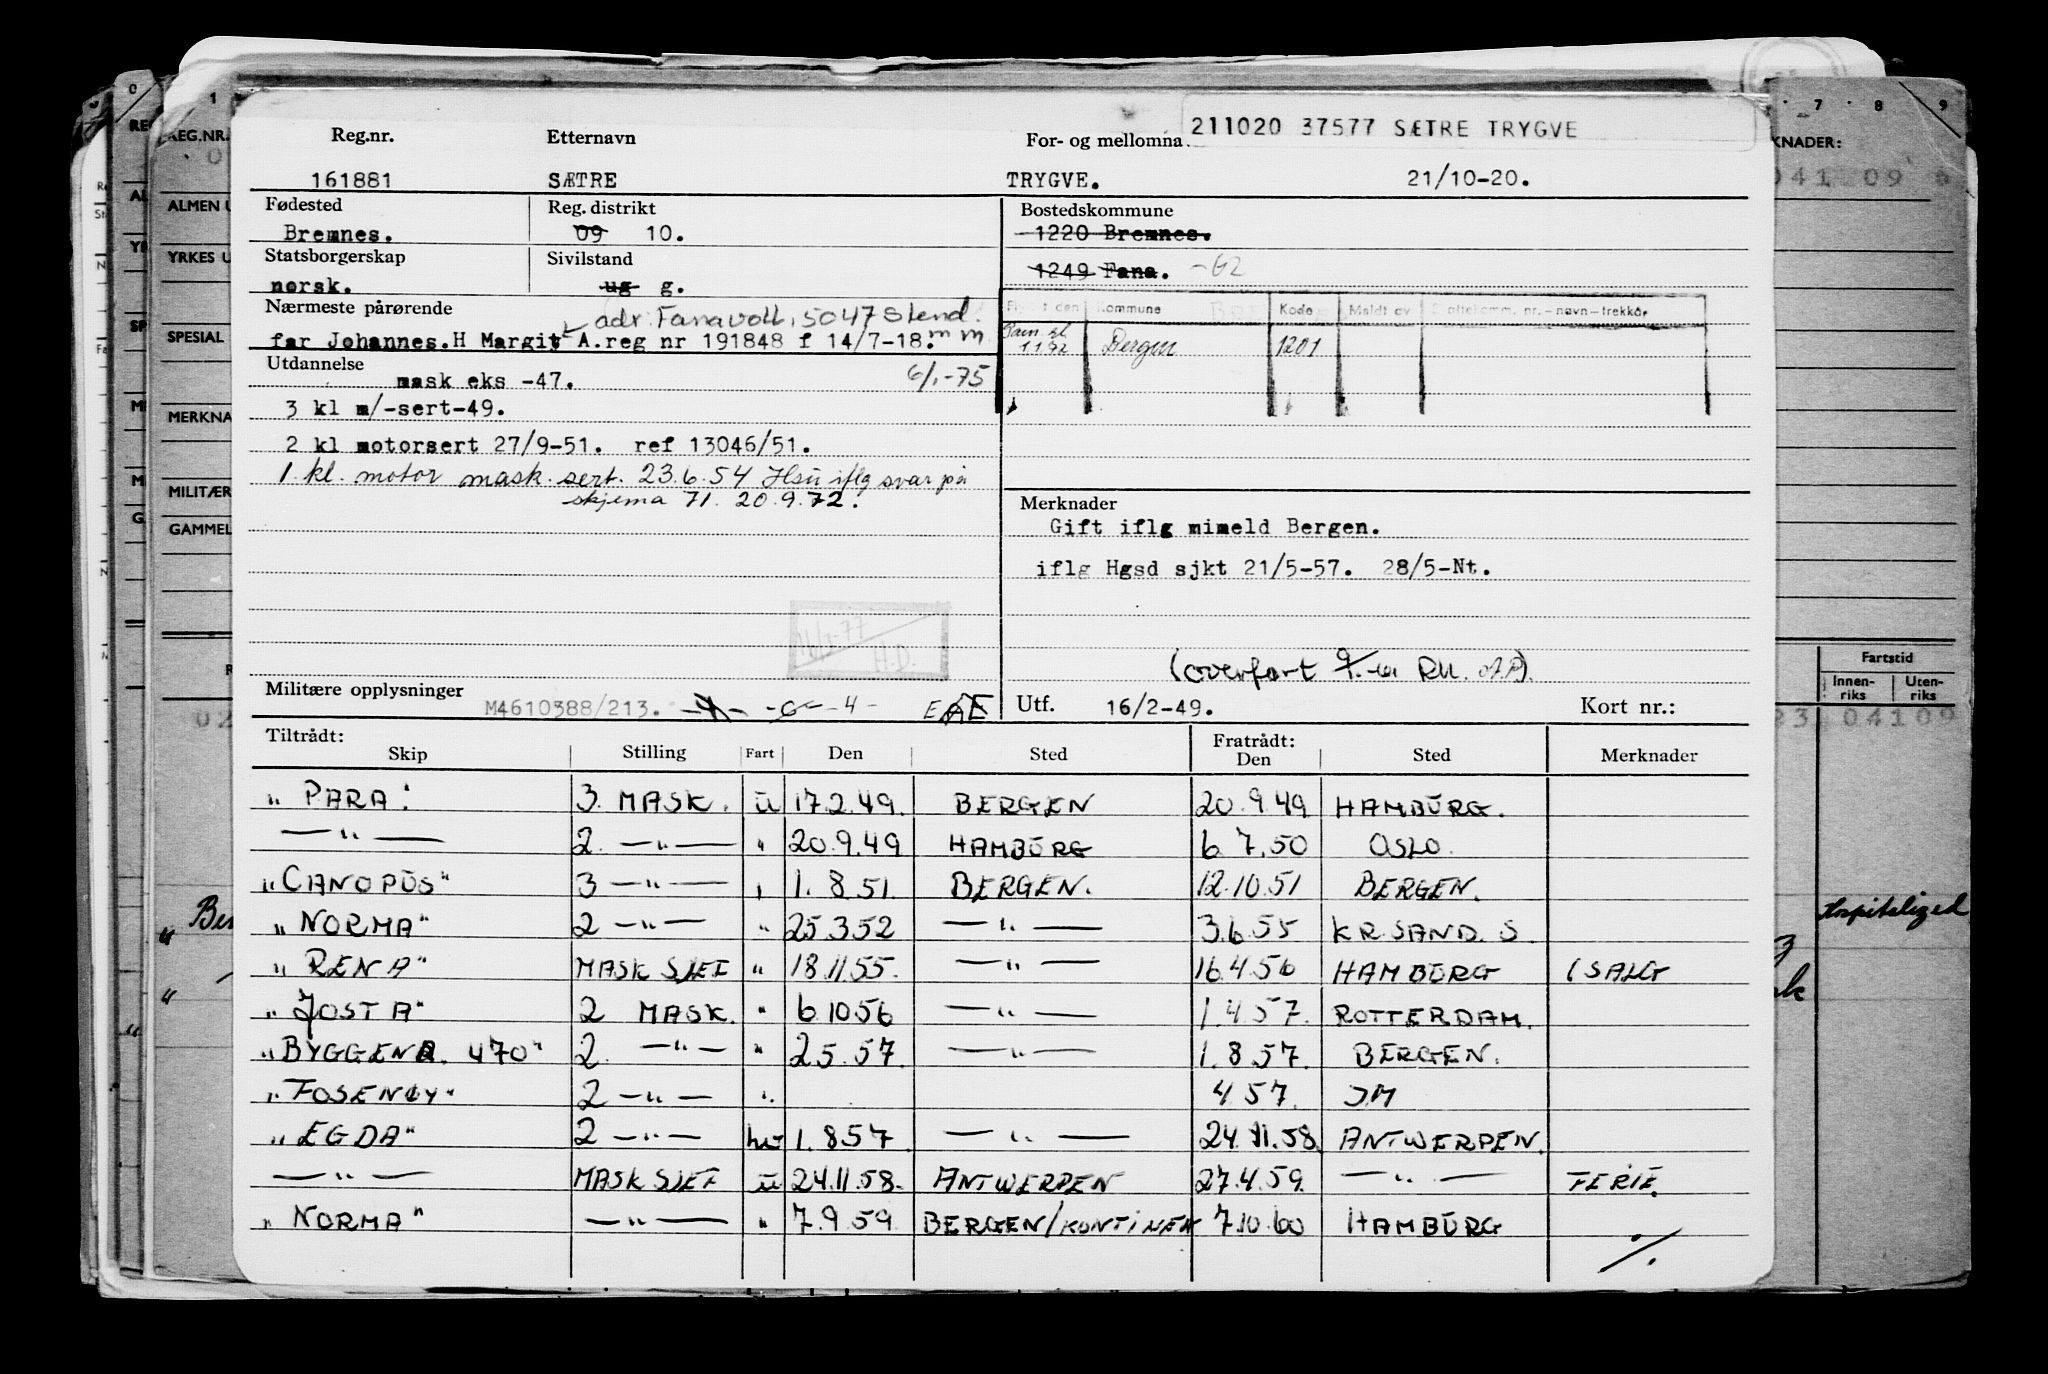 211020 37577 SÆTRE TRYGVE
Reg.nr. Etternavn For- og mellomna
161881 SÆTRE TRYGVE. 21/10-20.
Fødested Reg. distrikt Bostedskommune
Bremnes. 09 10. 1220 Bremnes.
Statsborgerskap Sivilstand 1249 Fana. -62
norsk. ug g.
Nærmeste pårørende adr. Fanavoll, 5047 Stend.
far Johannes.H Margit A.reg nr 191848 f 14/7-18. m m
Kommune Kode Meldt av nr.-navn-trekkår
1.1.72 Bergen 1201
Utdannelse
mask eks -47. 6/1-75
3 kl m/-sert-49.
2 kl motorsert 27/9-51. ref 13046/51.
1. kl. motor mask. sert. 23.6.54 Hsu iflg svar på
skjema 71. 20.9.72.
Merknader
Gift iflg mimeld Bergen.
iflg Hgsd sjkt 21/5-57. 28/5-Nt.
H.D.
(overført
Militære opplysninger M4610388/213. -4- Utf. 16/2-49. Kort nr.:
Tiltrådt: Fratrådt:
Skip Stilling Fart Den Sted Den Sted Merknader
" PARA. 3. MASK. U 17.2.49. BERGEN 20.9.49 HAMBURG.
— " — 2. — " — " 20.9.49 HAMBURG 6.7.50 OSLO.
"CANOPUS" 3 — " — " 1. 8.51. BERGEN. 12.10.51 BERGEN.
"NORMA" 2 — " — " 25.3.52 — " — 3.6.55 KR.SAND. S.
"RENA" MASK SJEF " 18.11.55. — " — 16.4.56 HAMBURG (SALG
"JOSTA" 2 MASK. " 6.10.56 — " — 1.4.57. ROTTERDAM.
"BYGGENR. 470" 2. — " — " 2.5.57. — " — 1.8.57. BERGEN.
"FOSENØY" 2 — " — " 4.57. JM
"EGDA" 2 — " — 1.8.57 — " — 24.11.58. ANTWERPEN.
— " — MASK SJEF U 24.11.58. ANTWERPEN 27.4.59. — " — FERIE.
"NORMA" — " — " 7.9.59 BERGEN/KONTINEN 7.10.60 HAMBURG
./.
REG.NR.
ALMEN U
YRKES U
SPECIAL
MERKNA
MILITÆR
GAMMEL
7 8 9
KNADER:
04109
Fartstid
Innen-riks Uten-riks
04109
Hospitalized